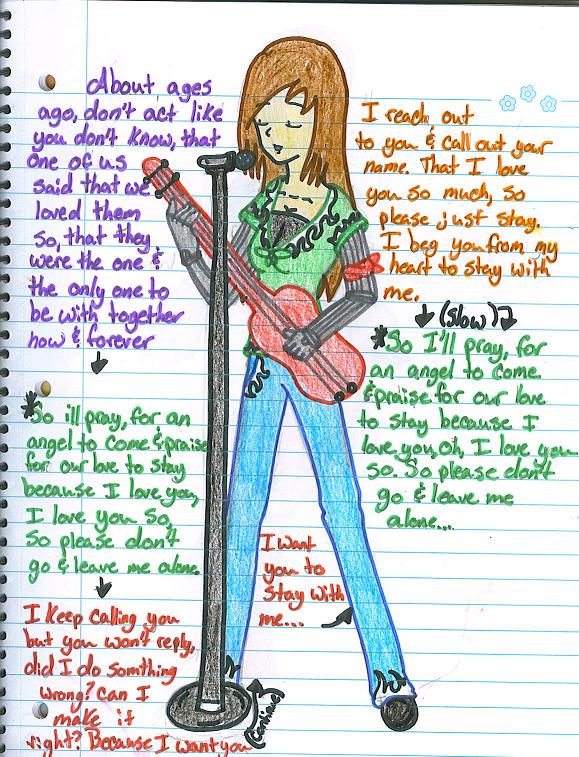 About ages
ago, don't act like
you don't know, that
one of us
said that we
loved them
so, that they
were the one &
the only one to
be with together
now & forever
*So ill pray, for an
angel to come & praise
for our love to stay
because I love you,
I love you so,
So please don't
go & leave me alone
I keep calling you
but you won't reply,
did I do somthing
wrong? Can I
make it
right? Because I want you
(continue)
I want
you to
stay with
me...
I reach out
to you & call out your
name. That I love
you so much, so
please just stay.
I beg you from my
heart to stay with
me.
(slow)
*So I'll pray, for
an angel to come
& praise for our love
to stay because I
love you, oh, I love you
so. So please don't
go & leave me
alone...